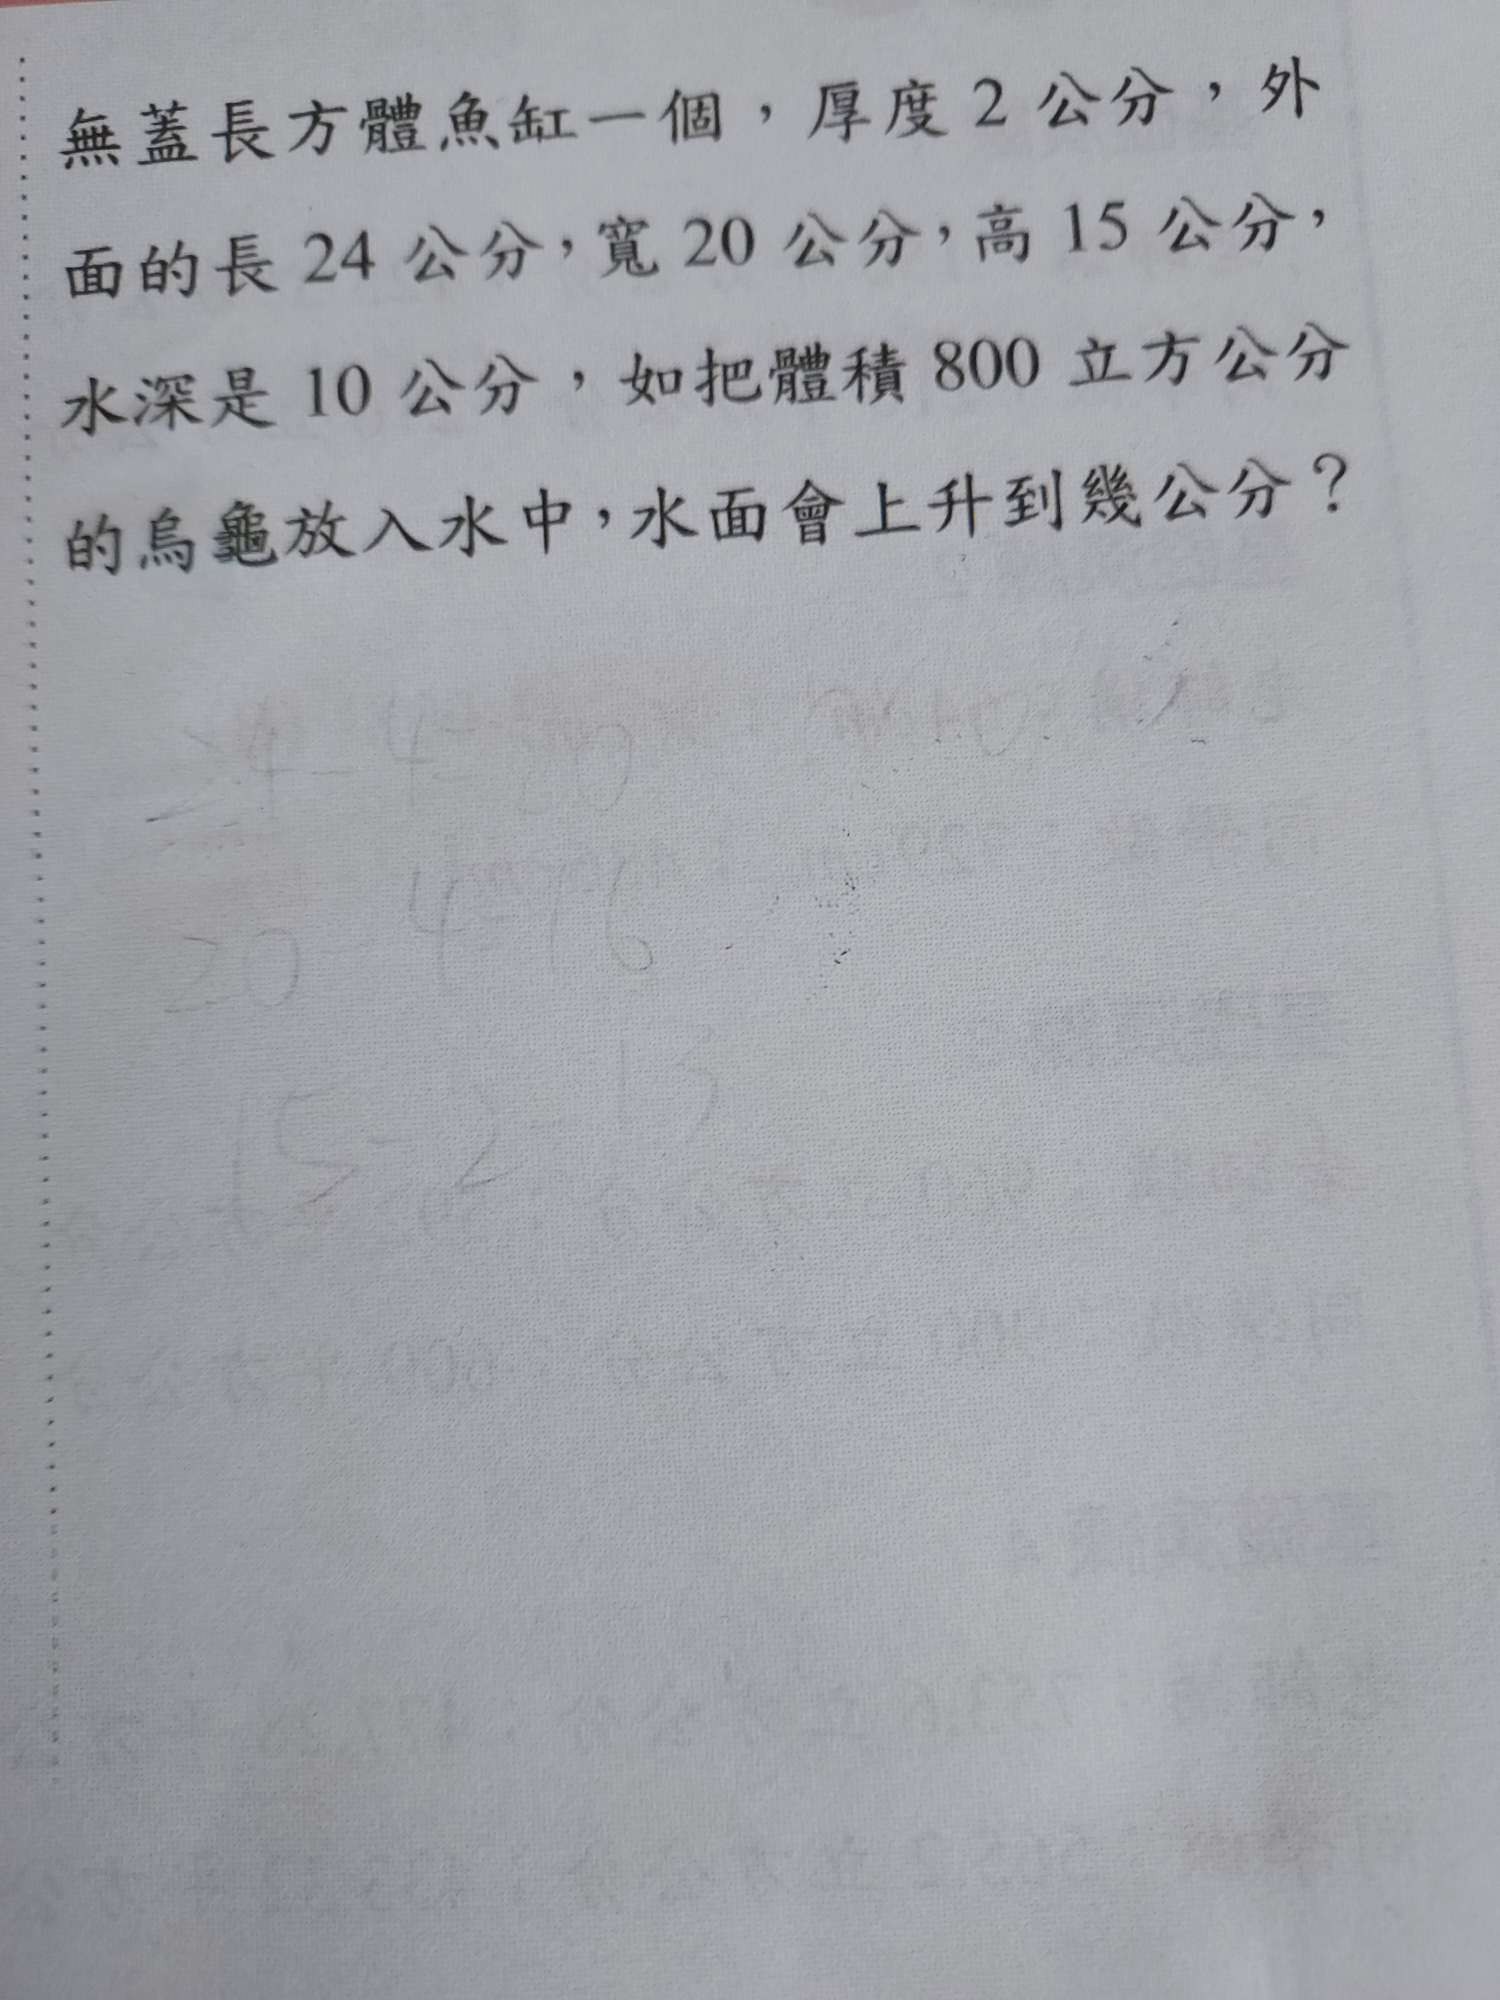 無蓋長方體魚缸一個，厚度 2 公分，外
面的長 24 公分，寬 20 公分，高 15 公分，
水深是 10 公分，如把體積 800 立方公分
的烏龜放入水中，水面會上升到幾公分？
24-4=20
20-4=16
15-2=13